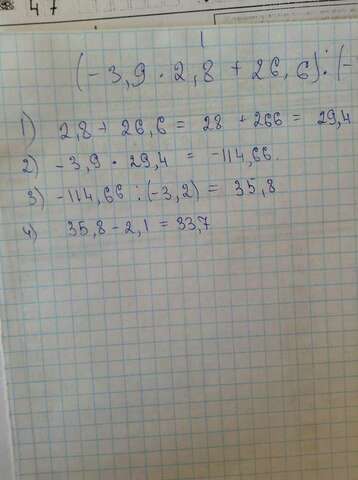 47
1
(-3,9 · 2,8 + 26,6) : (-
1) 2,8 + 26,6 = 28 + 266 = 29,4
2) -3,9 · 29,4 = -114,66.
3) -114,66 : (-3,2) = 35,8
4) 35,8 - 2,1 = 33,7